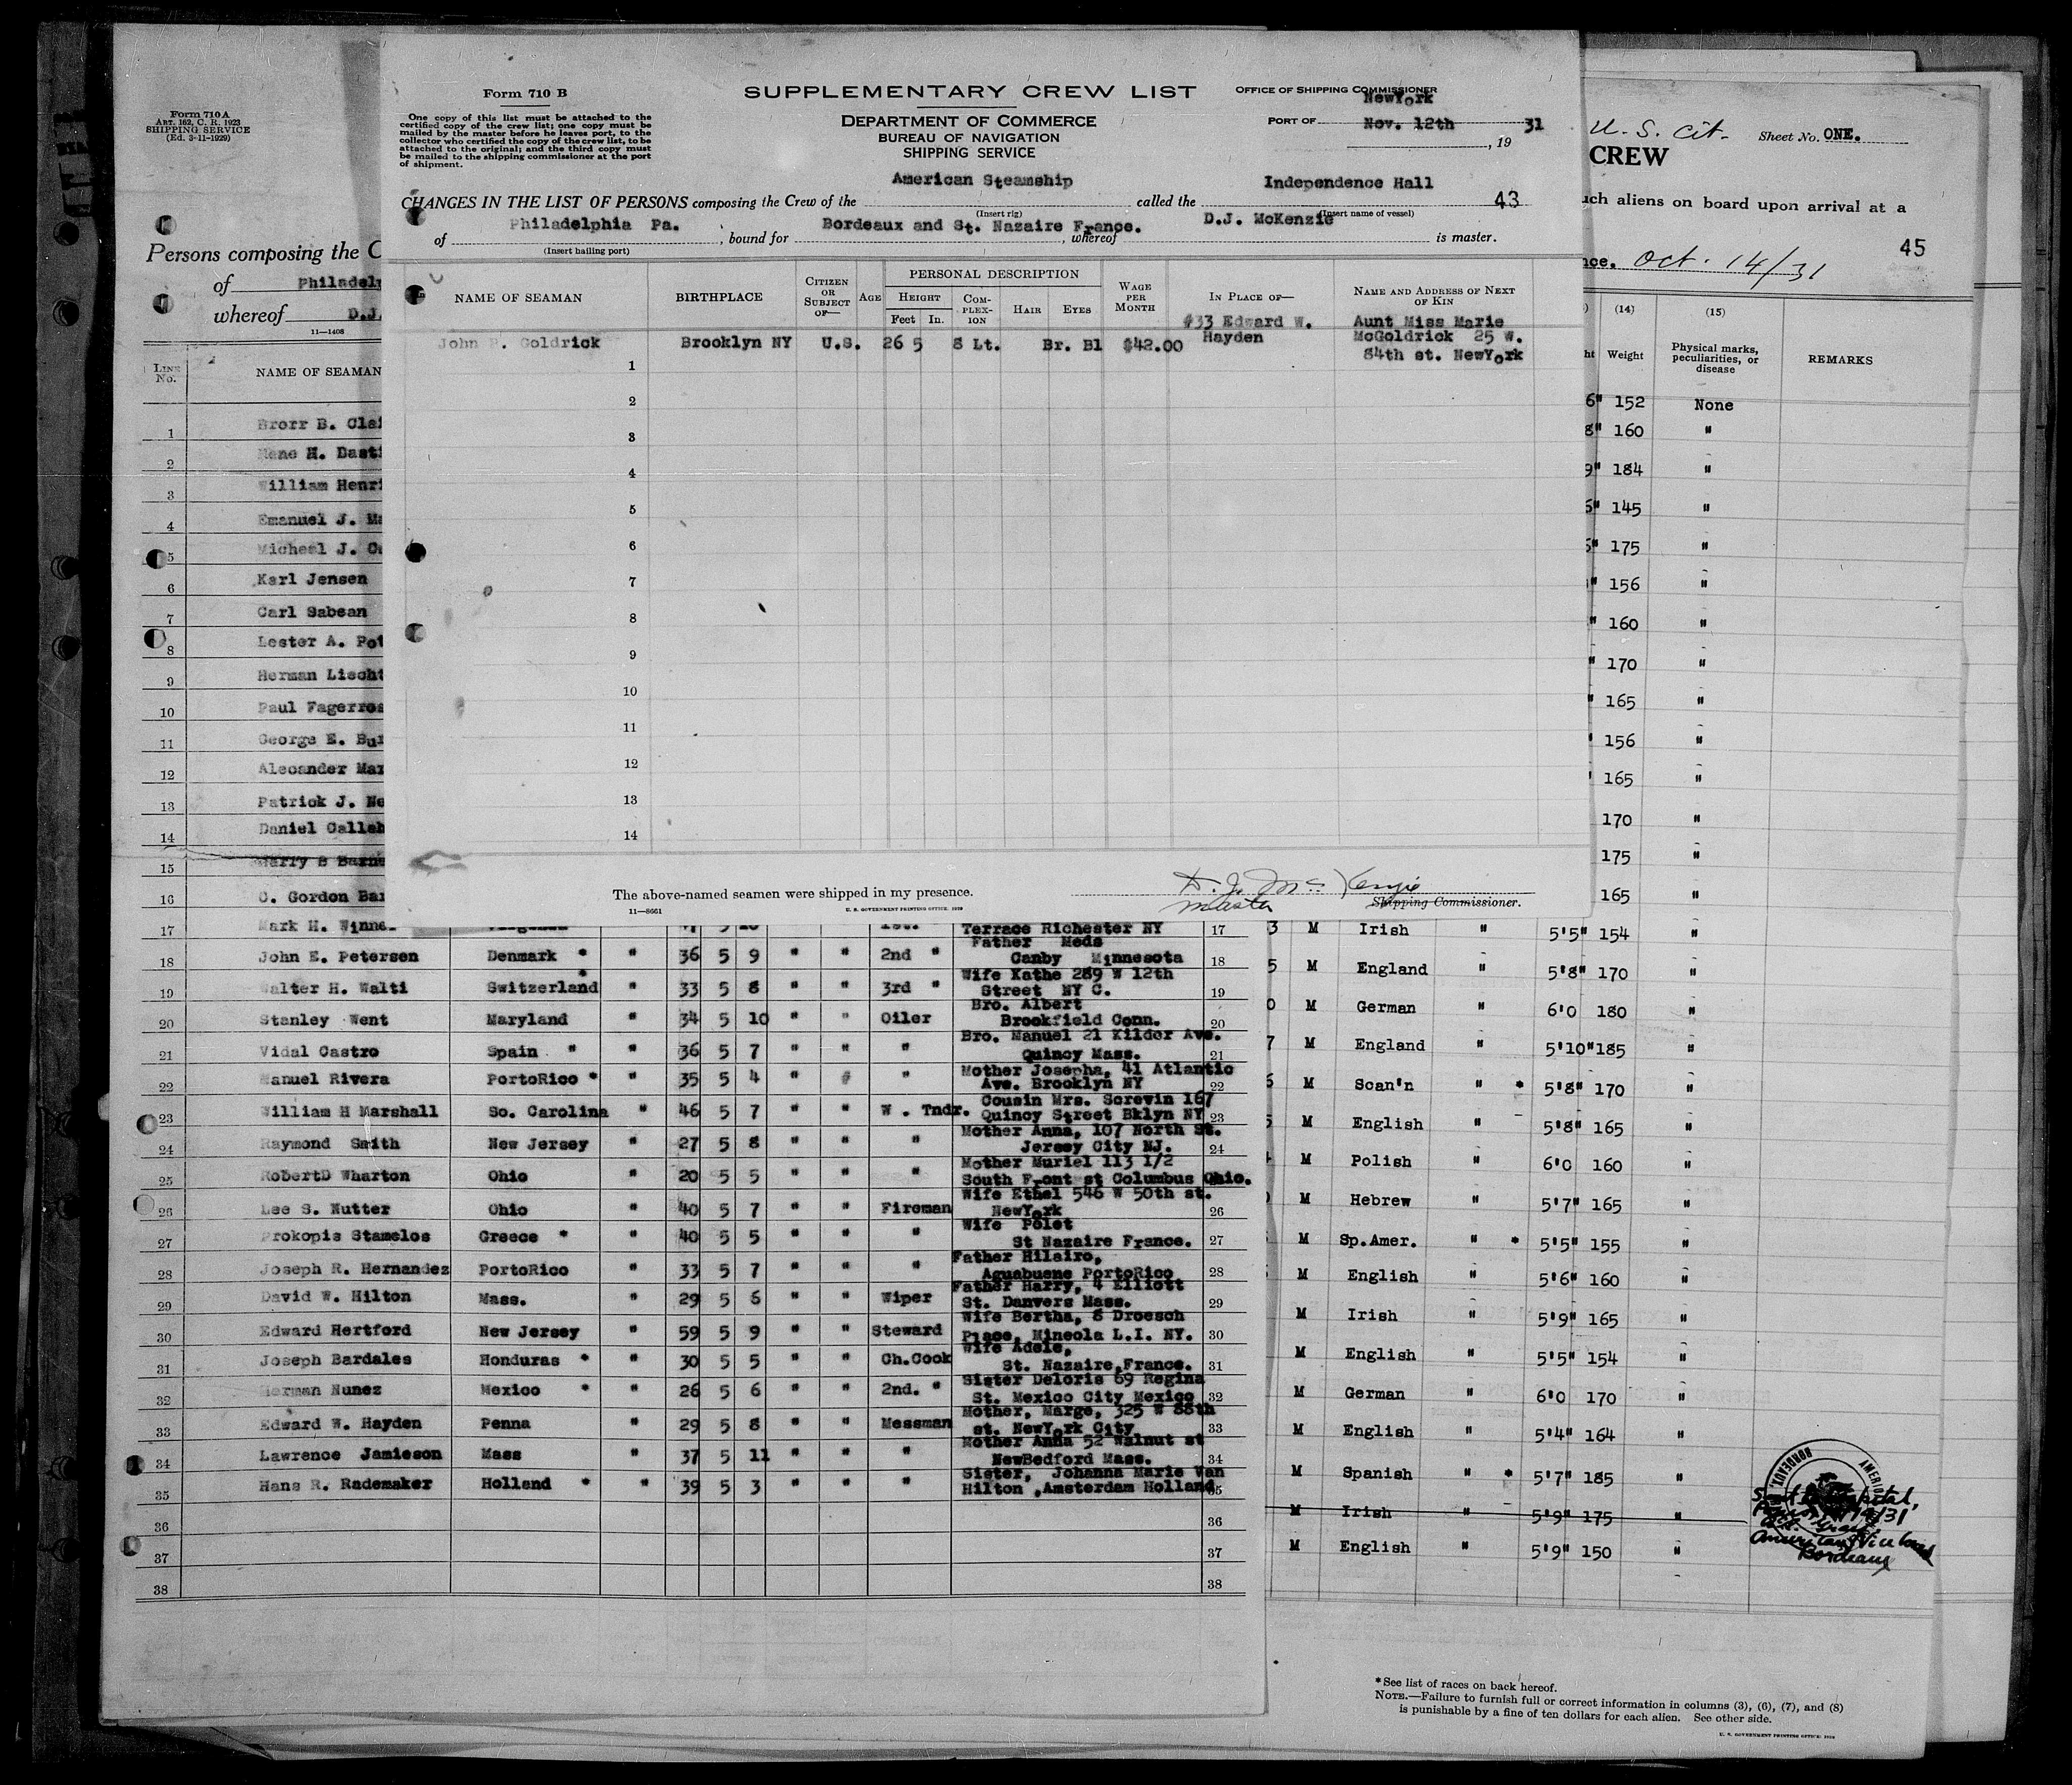 Form 710 B
One copy of this list must be attached to the
certified copy of the crew list; one copy must be
mailed by the master before he leaves port, to the
collector who certified the copy of the crew list, to be
attached to the original; and the third copy must
be mailed to the shipping commissioner at the port
of shipment.
SUPPLEMENTARY CREW LIST
DEPARTMENT OF COMMERCE
BUREAU OF NAVIGATION
SHIPPING SERVICE
OFFICE OF SHIPPING COMMISSIONER
NewYork
PORT OF Nov. 12th 31
, 19
American Steamship Independence Hall
CHANGES IN THE LIST OF PERSONS composing the Crew of the called the 43
(Insert rig) (Insert name of vessel)
Philadelphia Pa. Bordeaux and St. Nazaire France. D.J. McKenzie
of , bound for , whereof is master.
(Insert hailing port)
NAME OF SEAMAN BIRTHPLACE CITIZEN OR SUBJECT OF— AGE PERSONAL DESCRIPTION HEIGHT Feet In. COM-PLEX-ION HAIR EYES WAGE PER MONTH IN PLACE OF— NAME AND ADDRESS OF NEXT OF KIN
#33 Edward W. Aunt Miss Marie
John P. Goldrick Brooklyn NY U.S. 26 5 8 Lt. Br. Bl $42.00 Hayden McGoldrick 25 W.
84th st. NewYork
1
2
3
4
5
6
7
8
9
10
11
12
13
14
The above-named seamen were shipped in my presence.
D. J. McKenzie
master Shipping Commissioner.
11—8661 U. S. GOVERNMENT PRINTING OFFICE: 1929
Form 710 A
ART. 162, C. R. 1923
SHIPPING SERVICE
(Ed. 3-11-1929)
Persons composing the C
of Philadelp
whereof D.J.
11—1408
LINE No. NAME OF SEAMAN
1 Brorr B. Cla
2 H. Dasti
3 William Henri
4 Emanuel J. Ma
5 Micheal J.
6 Karl Jensen
7 Carl Sabean
8 Lester A. Pot
9 Herman Liecht
10 Paul Fagerros
11 George E. Bur
12 Alecander Mar
13 Patrick J. Ne
14 Daniel Callah
15 Harry S Barne
16 C. Gordon Bar
17 Mark H. Winne Terrace Richester NY 17
18 John E. Petersen Denmark * " 36 5 9 " " 2nd " Father Meds Canby Minnesota 18
19 Walter H. Walti Switzerland * " 33 5 8 " " 3rd " Wife Kathe 289 W 12th Street NY C. 19
20 Stanley Went Maryland " 34 5 10 " " Oiler Bro. Albert Brookfield Conn. 20
21 Vidal Castro Spain " " 36 5 7 " " " Bro. Manuel 21 Kilder Ave. Quincy Mass. 21
22 Manuel Rivera PortoRico * " 35 5 4 " " " Mother Josepha, 41 Atlantic Ave. Brooklyn NY 22
23 William H Marshall So. Carolina " 46 5 7 " " W . Tndr. Cousin Mrs. Screvin 167 Quincy Street Bklyn NY 23
24 Raymond Smith New Jersey " 27 5 8 " " " Mother Anna, 107 North St. Jersey City NJ. 24
25 RobertD Wharton Ohio " 20 5 5 " " " Mother Muriel 113 1/2 South Front st Columbus Ohio.
26 Lee S. Nutter Ohio " 40 5 7 " " Fireman Wife Ethel 546 W 50th st. NewYork 26
27 Prokopis Stamelos Greece * " 40 5 5 " " " Wife Polet St Nazaire France. 27
28 Joseph R. Hernandez PortoRico " 33 5 7 " " " Father Hilairo, Aguabuene PortoRico 28
29 David W. Hilton Mass. " 29 5 6 " " Wiper Father Harry, 4 Elliott St. Danvers Mass. 29
30 Edward Hertford New Jersey " 59 5 9 " " Steward Wife Bertha, 8 Droesch Place, Mineola L.I. NY. 30
31 Joseph Bardales Honduras * " 30 5 5 " " Ch.Cook Wife Adele, St. Nazaire,France. 31
32 Herman Nunez Mexico * " 26 5 6 " " 2nd. " Sister Deloris 69 Regina St. Mexico City Mexico 32
33 Edward W. Hayden Penna " 29 5 8 " " Messman Mother, Marge, 325 W 88th st. NewYork City 33
34 Lawrence Jamieson Mass " 37 5 11 " " " Mother Anna 52 Walnut st NewBedford Mass. 34
35 Hans R. Rademaker Holland * " 39 5 3 " " " Sister, Johanna Marie Van Hilton ,Amsterdam Holland 35
36 36
37 37
38 38
U. S. Cit. Sheet No. ONE.
CREW
uch aliens on board upon arrival at a
45
nce. Oct. 14/31
(14) (15)
ht Weight Physical marks, peculiarities, or disease REMARKS
6" 152 None
8" 160 "
9" 184 "
6" 145 "
5" 175 "
" 156 "
" 160 "
" 170 "
" 165 "
" 156 "
' 165 "
170 "
175 "
165 "
3 M Irish " 5'5" 154 "
5 M England " 5'8" 170 "
0 M German " 6'0 180 "
7 M England " 5'10" 185 "
6 M Scan'n " * 5'8" 170 "
5 M English " 5'8" 165 "
M Polish " 6'0 160 "
M Hebrew " 5'7" 165 "
M Sp.Amer. " * 5'5" 155 "
M English " 5'6" 160 "
M Irish " 5'9" 165 "
M English " 5'5" 154 "
M German " 6'0 170 "
M English " 5'4" 164 "
M Spanish " * 5'7" 185 "
M Irish " 5'9" 175 "
M English " 5'9" 150 "
BORDEAUX
Bordeaux
*See list of races on back hereof.
NOTE.—Failure to furnish full or correct information in columns (3), (6), (7), and (8)
is punishable by a fine of ten dollars for each alien. See other side.
U. S. GOVERNMENT PRINTING OFFICE: 1929